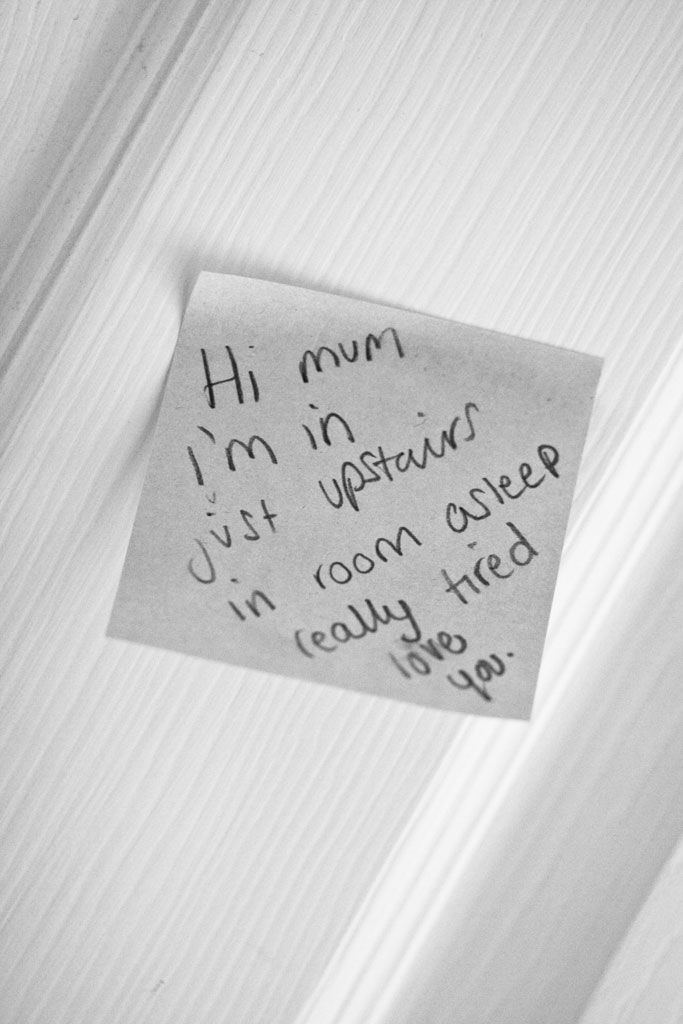 Hi mum
I'm in
just upstairs
in room asleep
really tired
love
you.